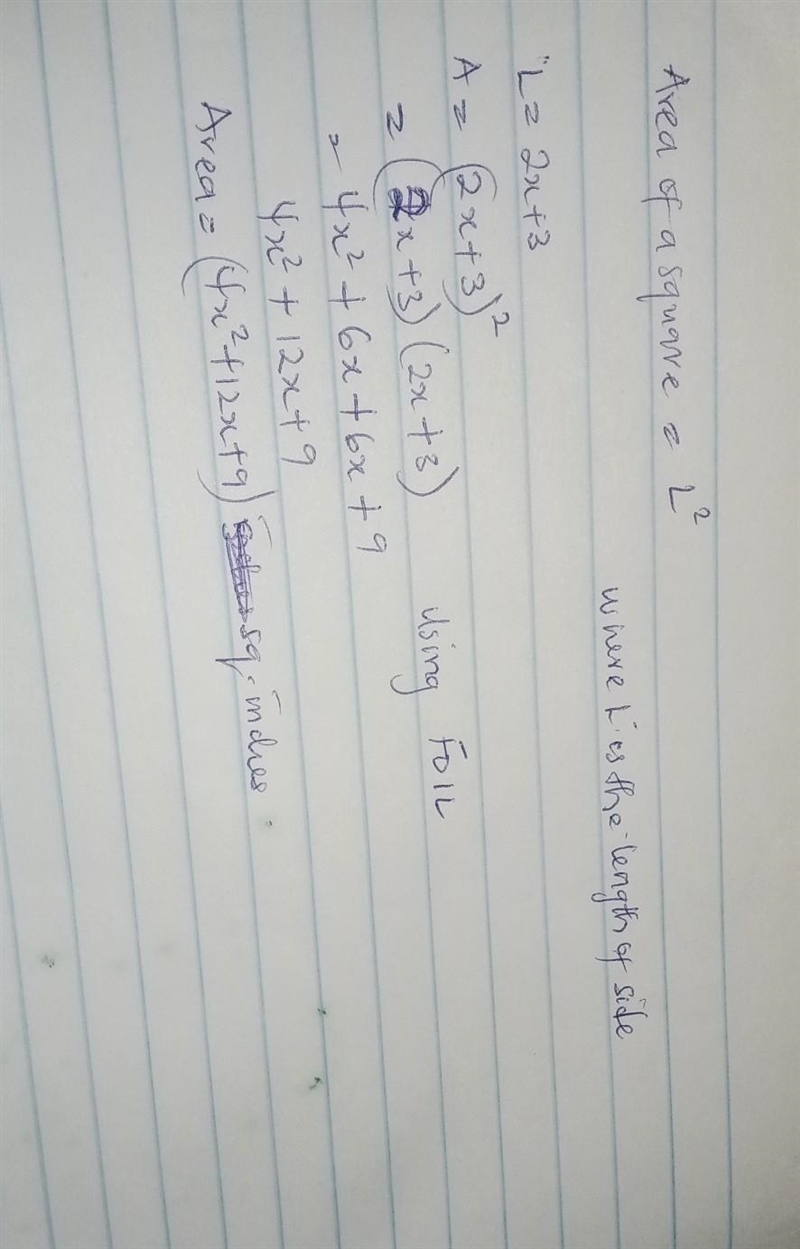 Area of a square = L²
where L is the length of side
L = 2x+3
A = (2x+3)²
= (2x+3)(2x+3) using FOIL
= 4x² + 6x + 6x + 9
4x² + 12x + 9
Area = (4x²+12x+9) sq. inches.